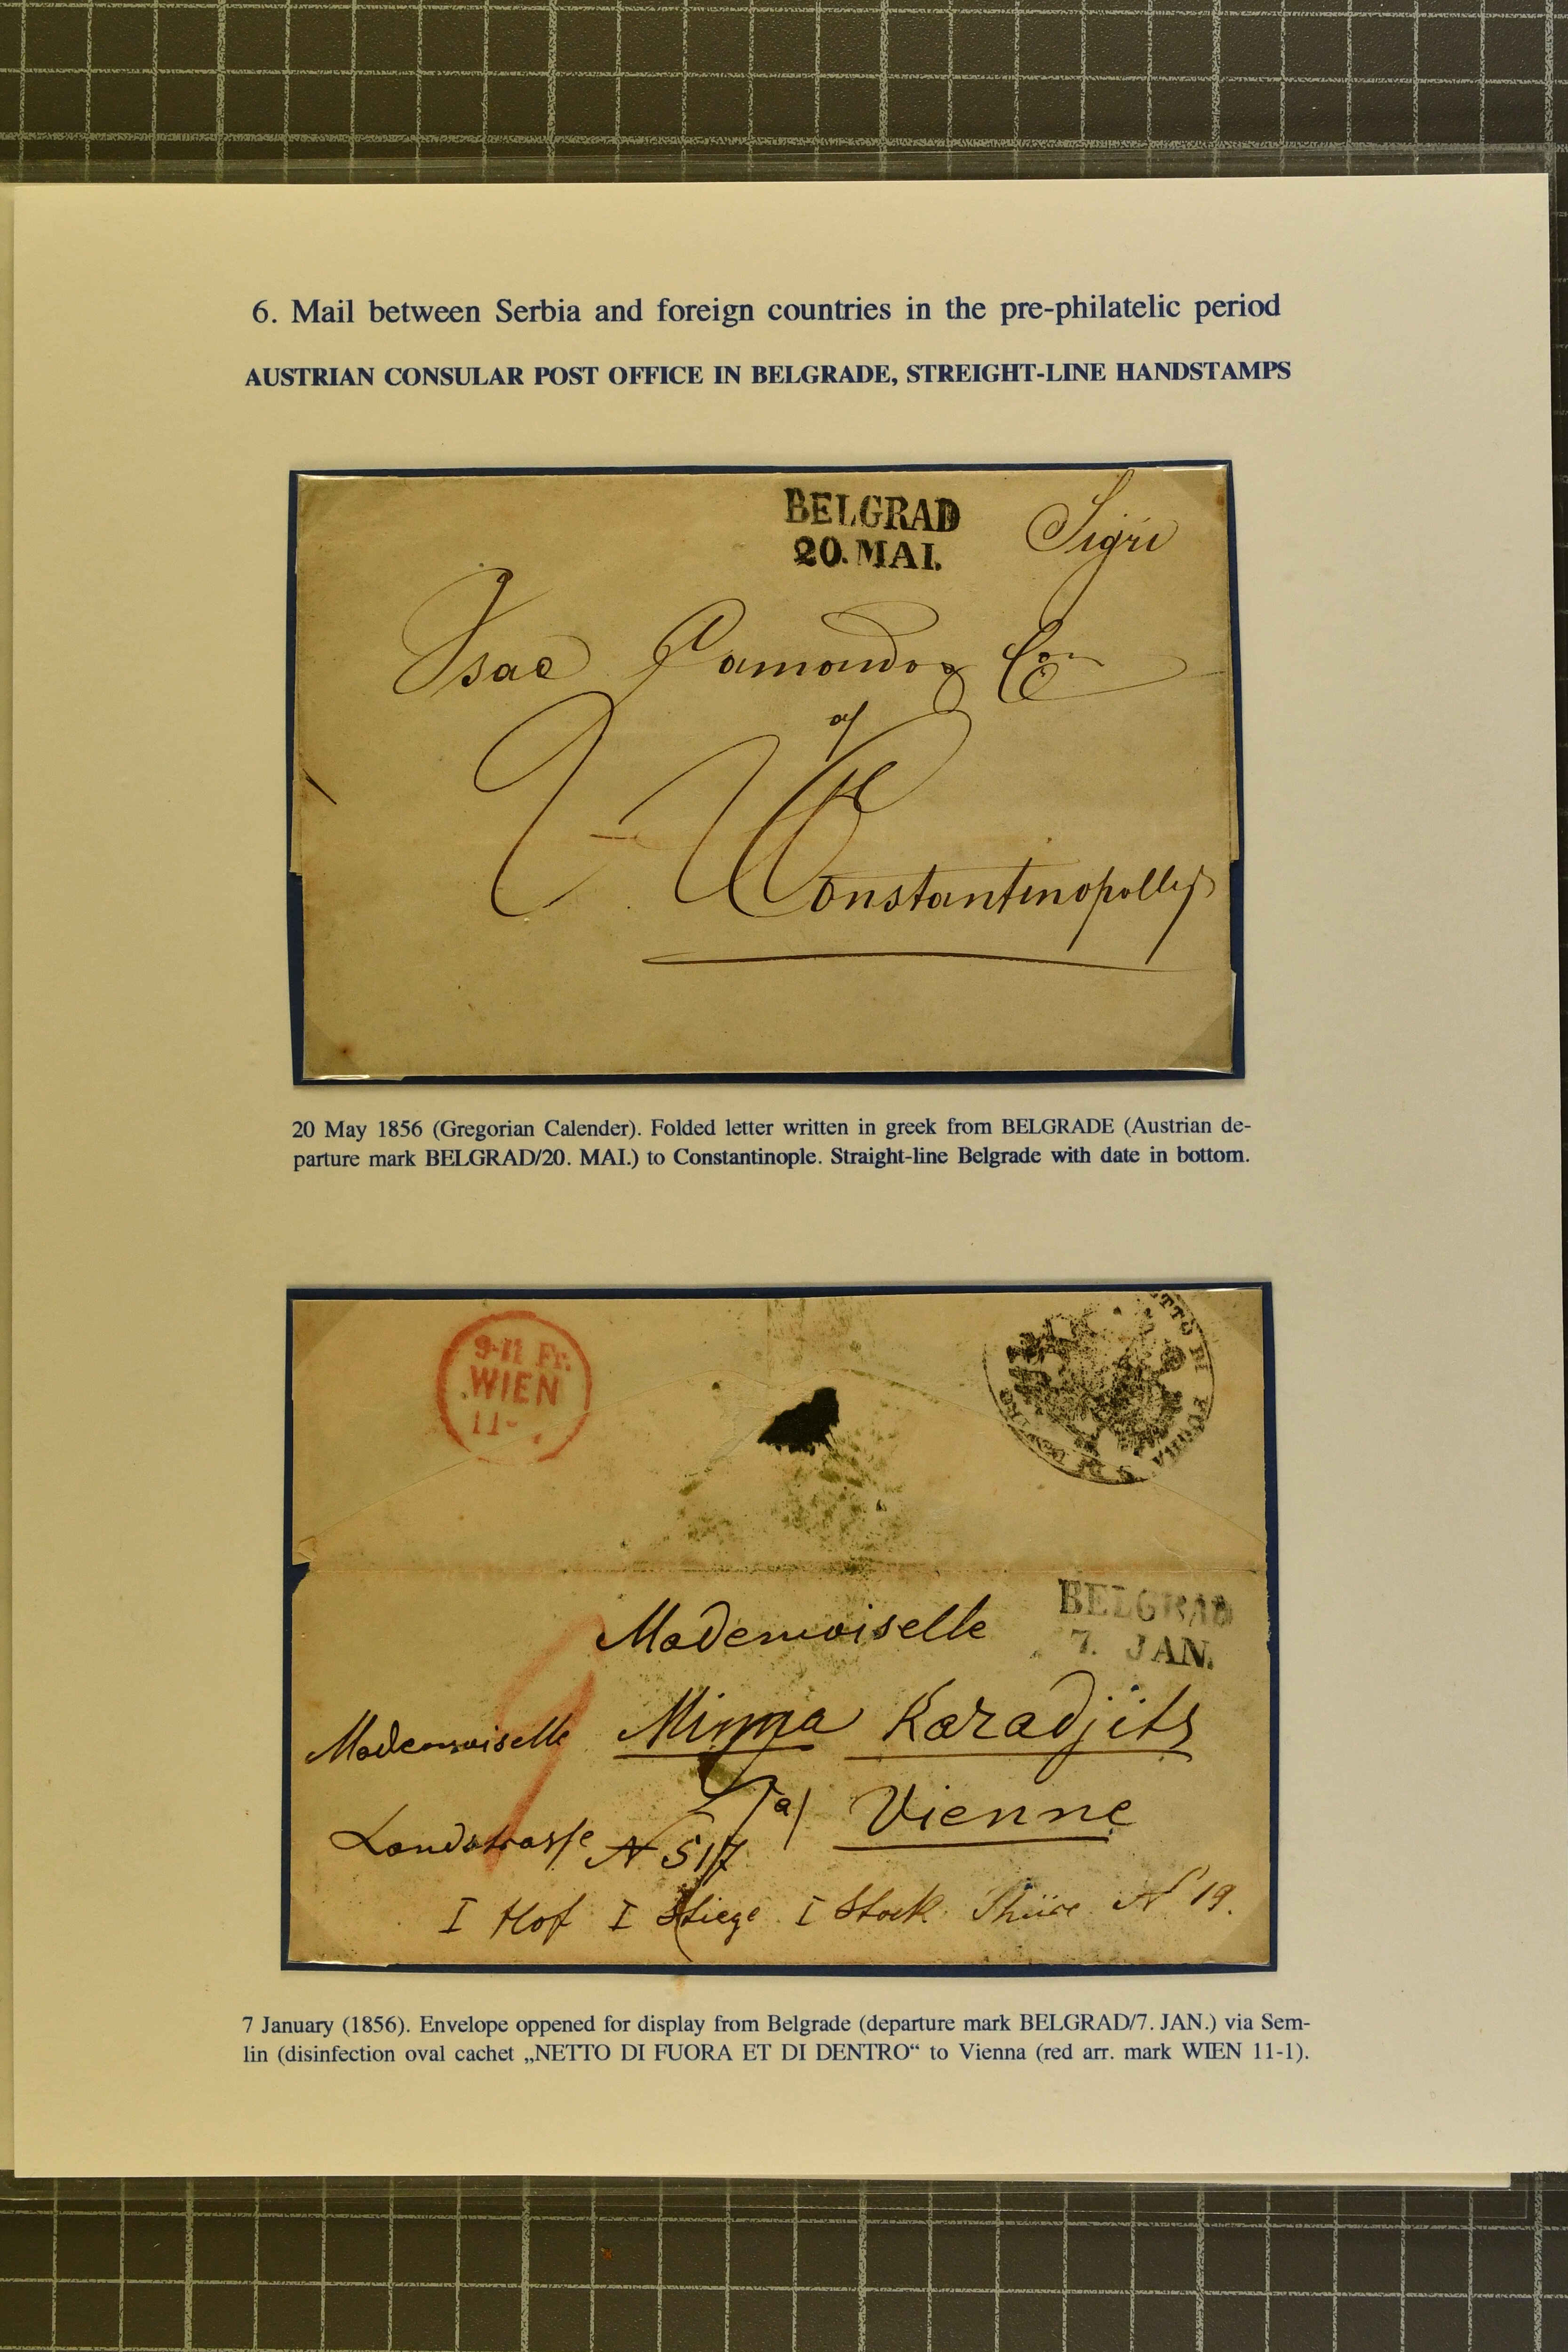 6. Mail between Serbia and foreign countries in the pre-philatelic period
AUSTRIAN CONSULAR POST OFFICE IN BELGRADE, STREIGHT-LINE HANDSTAMPS
BELGRAD
20. MAI.
Sigri
Isac Camondo & Co
a/
Constantinopolly
20 May 1856 (Gregorian Calender). Folded letter written in greek from BELGRADE (Austrian de-
parture mark BELGRAD/20. MAI.) to Constantinople. Straight-line Belgrade with date in bottom.
9-11 Fr.
WIEN
11-
TTO DI FUORA
BELGRAD
7. JAN.
Mademoiselle
Minna Karadjits
Mademoiselle
a/ Vienne
Landstrasse N 517
I Hof I Stiege I Stock Thüre N 19.
7 January (1856). Envelope oppened for display from Belgrade (departure mark BELGRAD/7. JAN.) via Sem-
lin (disinfection oval cachet „NETTO DI FUORA ET DI DENTRO“ to Vienna (red arr. mark WIEN 11-1).